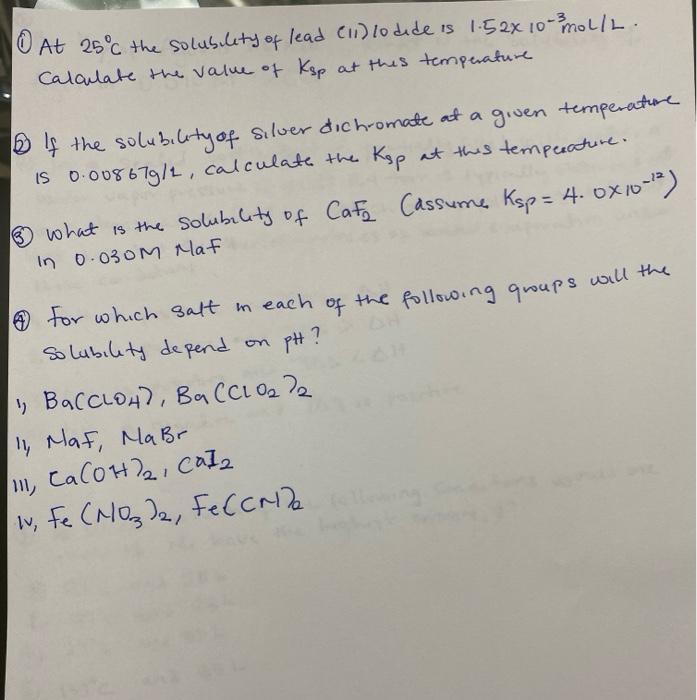 ① At 25°C the solubility of lead (11) Iodide is 1.52x10-³mol/L.
Calculate the value of Ksp at this temperature
② If the solubility of silver dichromate at a given temperature
is 0.00867g/L, calculate the Ksp at this temperature.
③ what is the solubility of CaF₂ (assume Ksp = 4.0x10-¹²)
in 0.030M NaF
④ for which salt in each of the following groups will the
solubility depend on pH?
1, Ba(ClO4), Ba(ClO₂)₂
11, NaF, NaBr
111, Ca(OH)₂, CaI₂
1v, Fe(NO₃)₂, Fe(CN)₂